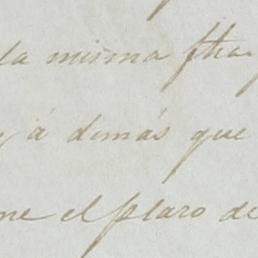 la misma fha
y á demás que
ne el plazo de